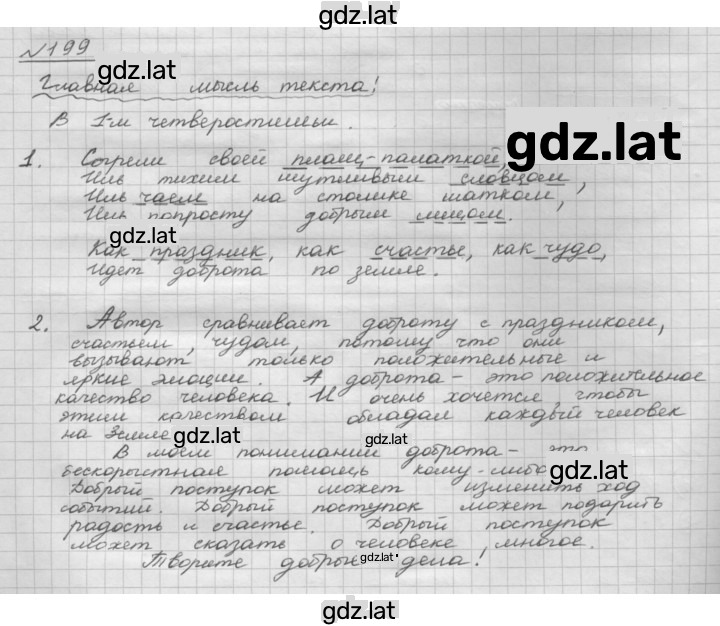 gdz.lat
№199
gdz.lat
Главная мысль текста!
В 1-м четверостишьи.
gdz.lat
1. Согрели своей плащ-палаткой,
Иль тихим шутливым словцом,
Иль чаем на столике шатком,
Иль попросту добрым лицом.
gdz.lat
Как праздник, как счастье, как чудо,
Идет доброта по земле.
2. Автор сравнивает доброту с праздником,
счастьем, чудом, потому что они
вызывают только положительные и
яркие эмоции. А доброта - это положительное
качество человека. И очень хочется, чтобы
этим качеством обладал каждый человек
на Земле
gdz.lat
В моем понимании доброта - это
бескорыстная помощь кому-либо
gdz.lat
Добрый поступок может изменить ход
событий. Добрый поступок может подарить
радость и счастье. Добрый поступок
может сказать о человеке многое.
Творите добрые дела!
gdz.lat
gdz.lat